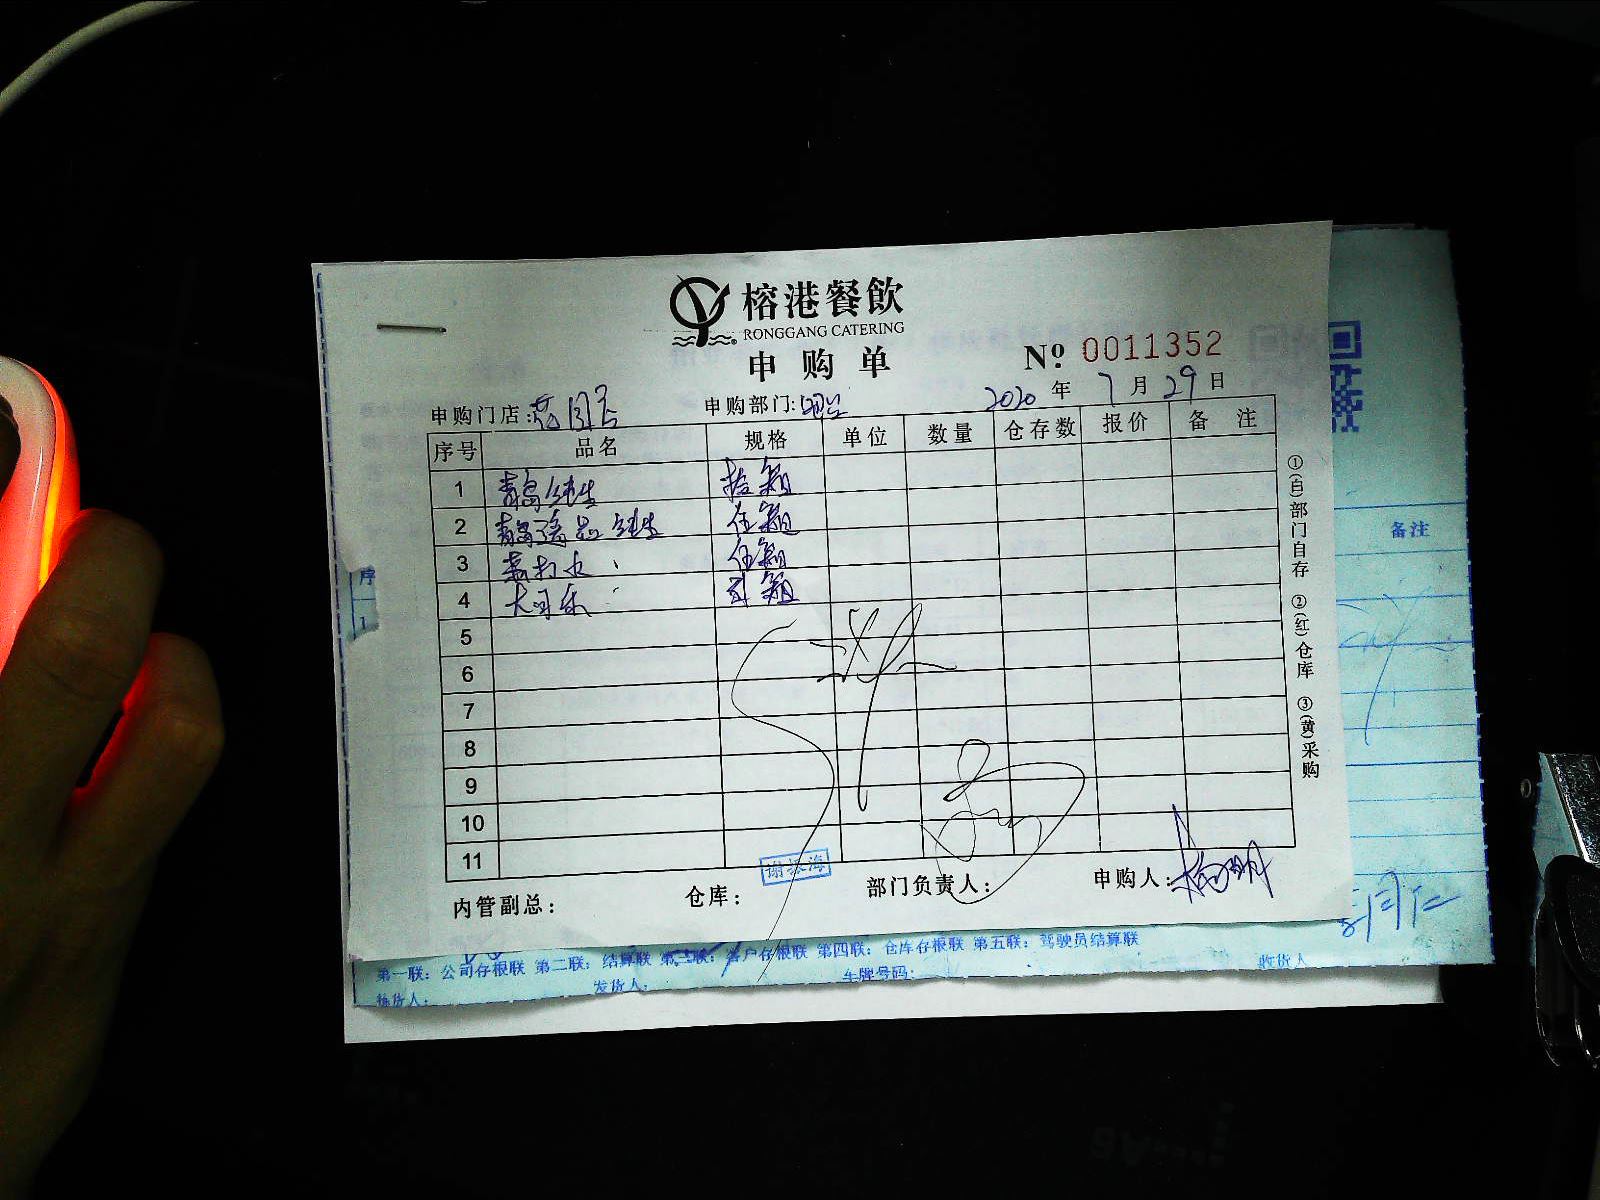 榕港餐飲
RONGGANG CATERING
申购单
Nº 0011352
申购门店: 申购部门: 吧台 2020年7月29日
序号 品名 规格 单位 数量 仓存数 报价 备注
1 青岛纯生 拾箱
2 青岛 纯生 伍箱
3 苏打水 伍箱
4 大可乐 贰箱
5
6
7
8
9
10
11
内管副总: 仓库: 谢振海 部门负责人: 申购人:
①(白)部门自存 ②(红)仓库 ③(黄)采购
备注
序
1
第一联:公司存根联 第二联:结算联 第三联:客户存根联 第四联:仓库存根联 第五联:驾驶员结算联
拣货人: 发货人: 车牌号码: 收货人